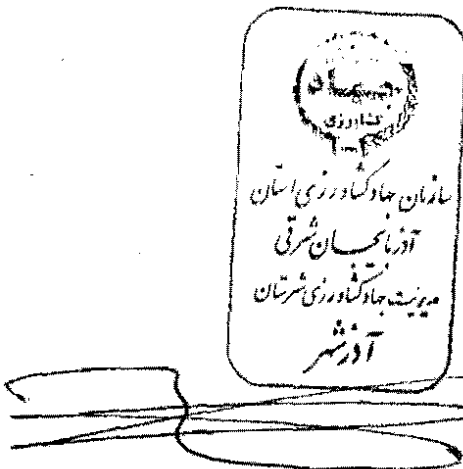 جهاد
کشاورزی
سازمان جهاد کشاورزی استان
آذربایجان شرقی
مدیریت جهاد کشاورزی شهرستان
آذرشهر